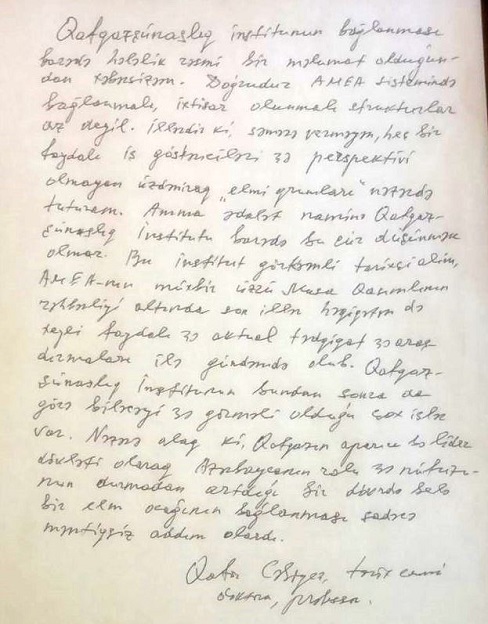 Qafqazşünaslıq institunun bağlanması
barədə hələlik rəsmi bir məlumat olduğun-
dan xəbərsizəm. Doğrudur AMEA sistemində
bağlanmalı, ixtisar olunmalı strukturlar
az deyil. İllərdir ki, səmərə verməyən, heç bir
faydalı iş göstəriciləri və perspektivi
olmayan üzdəniraq "elmi qrumları" nəzərdə
tuturam. Amma ədalət naminə Qafqaz-
şünaslıq İnstitutu barədə bu cür düşünmək
olmaz. Bu institut görkəmli tarixçi alim,
AMEA-nın müxbir üzvü Musa Qasımlının
rəhbərliyi altında son illər həqiqətən də
xeyli faydalı və aktual tədqiqat və araş-
dırmaları ilə gündəmdə olub. Qafqaz-
şünaslıq İnstitunun bundan sonra da
görə biləcəyi və görməli olduğu çox işlər
var. Nəzərə alaq ki, Qafqazın aparıcı və lider
dövləti olaraq Azərbaycanın rolu və nüfuzu-
nun durmadan artdığı bir dövrdə belə
bir elm ocağının bağlanması sadəcə
məntiqsiz addım olardı.
tarix elmi
doktoru, professor.